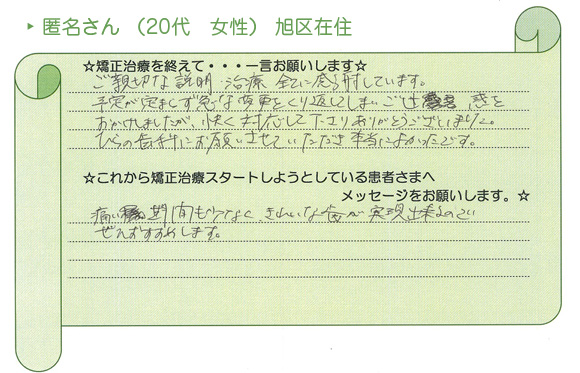 ▸ 匿名さん （20代　女性） 旭区在住
☆矯正治療を終えて・・・一言お願いします☆
ご親切な説明、治療 全てに感謝しています。
予定が定まらず急な変更をくり返してしまいご迷惑を
おかけしましたが、快く対応して下さりありがとうございました。
ひらの歯科にお願いさせていただき本当によかったです。
☆これから矯正治療スタートしようとしている患者さまへ
メッセージをお願いします。☆
痛い期間も少なく きれいな歯が実現出来るので
ぜひおすすめします。